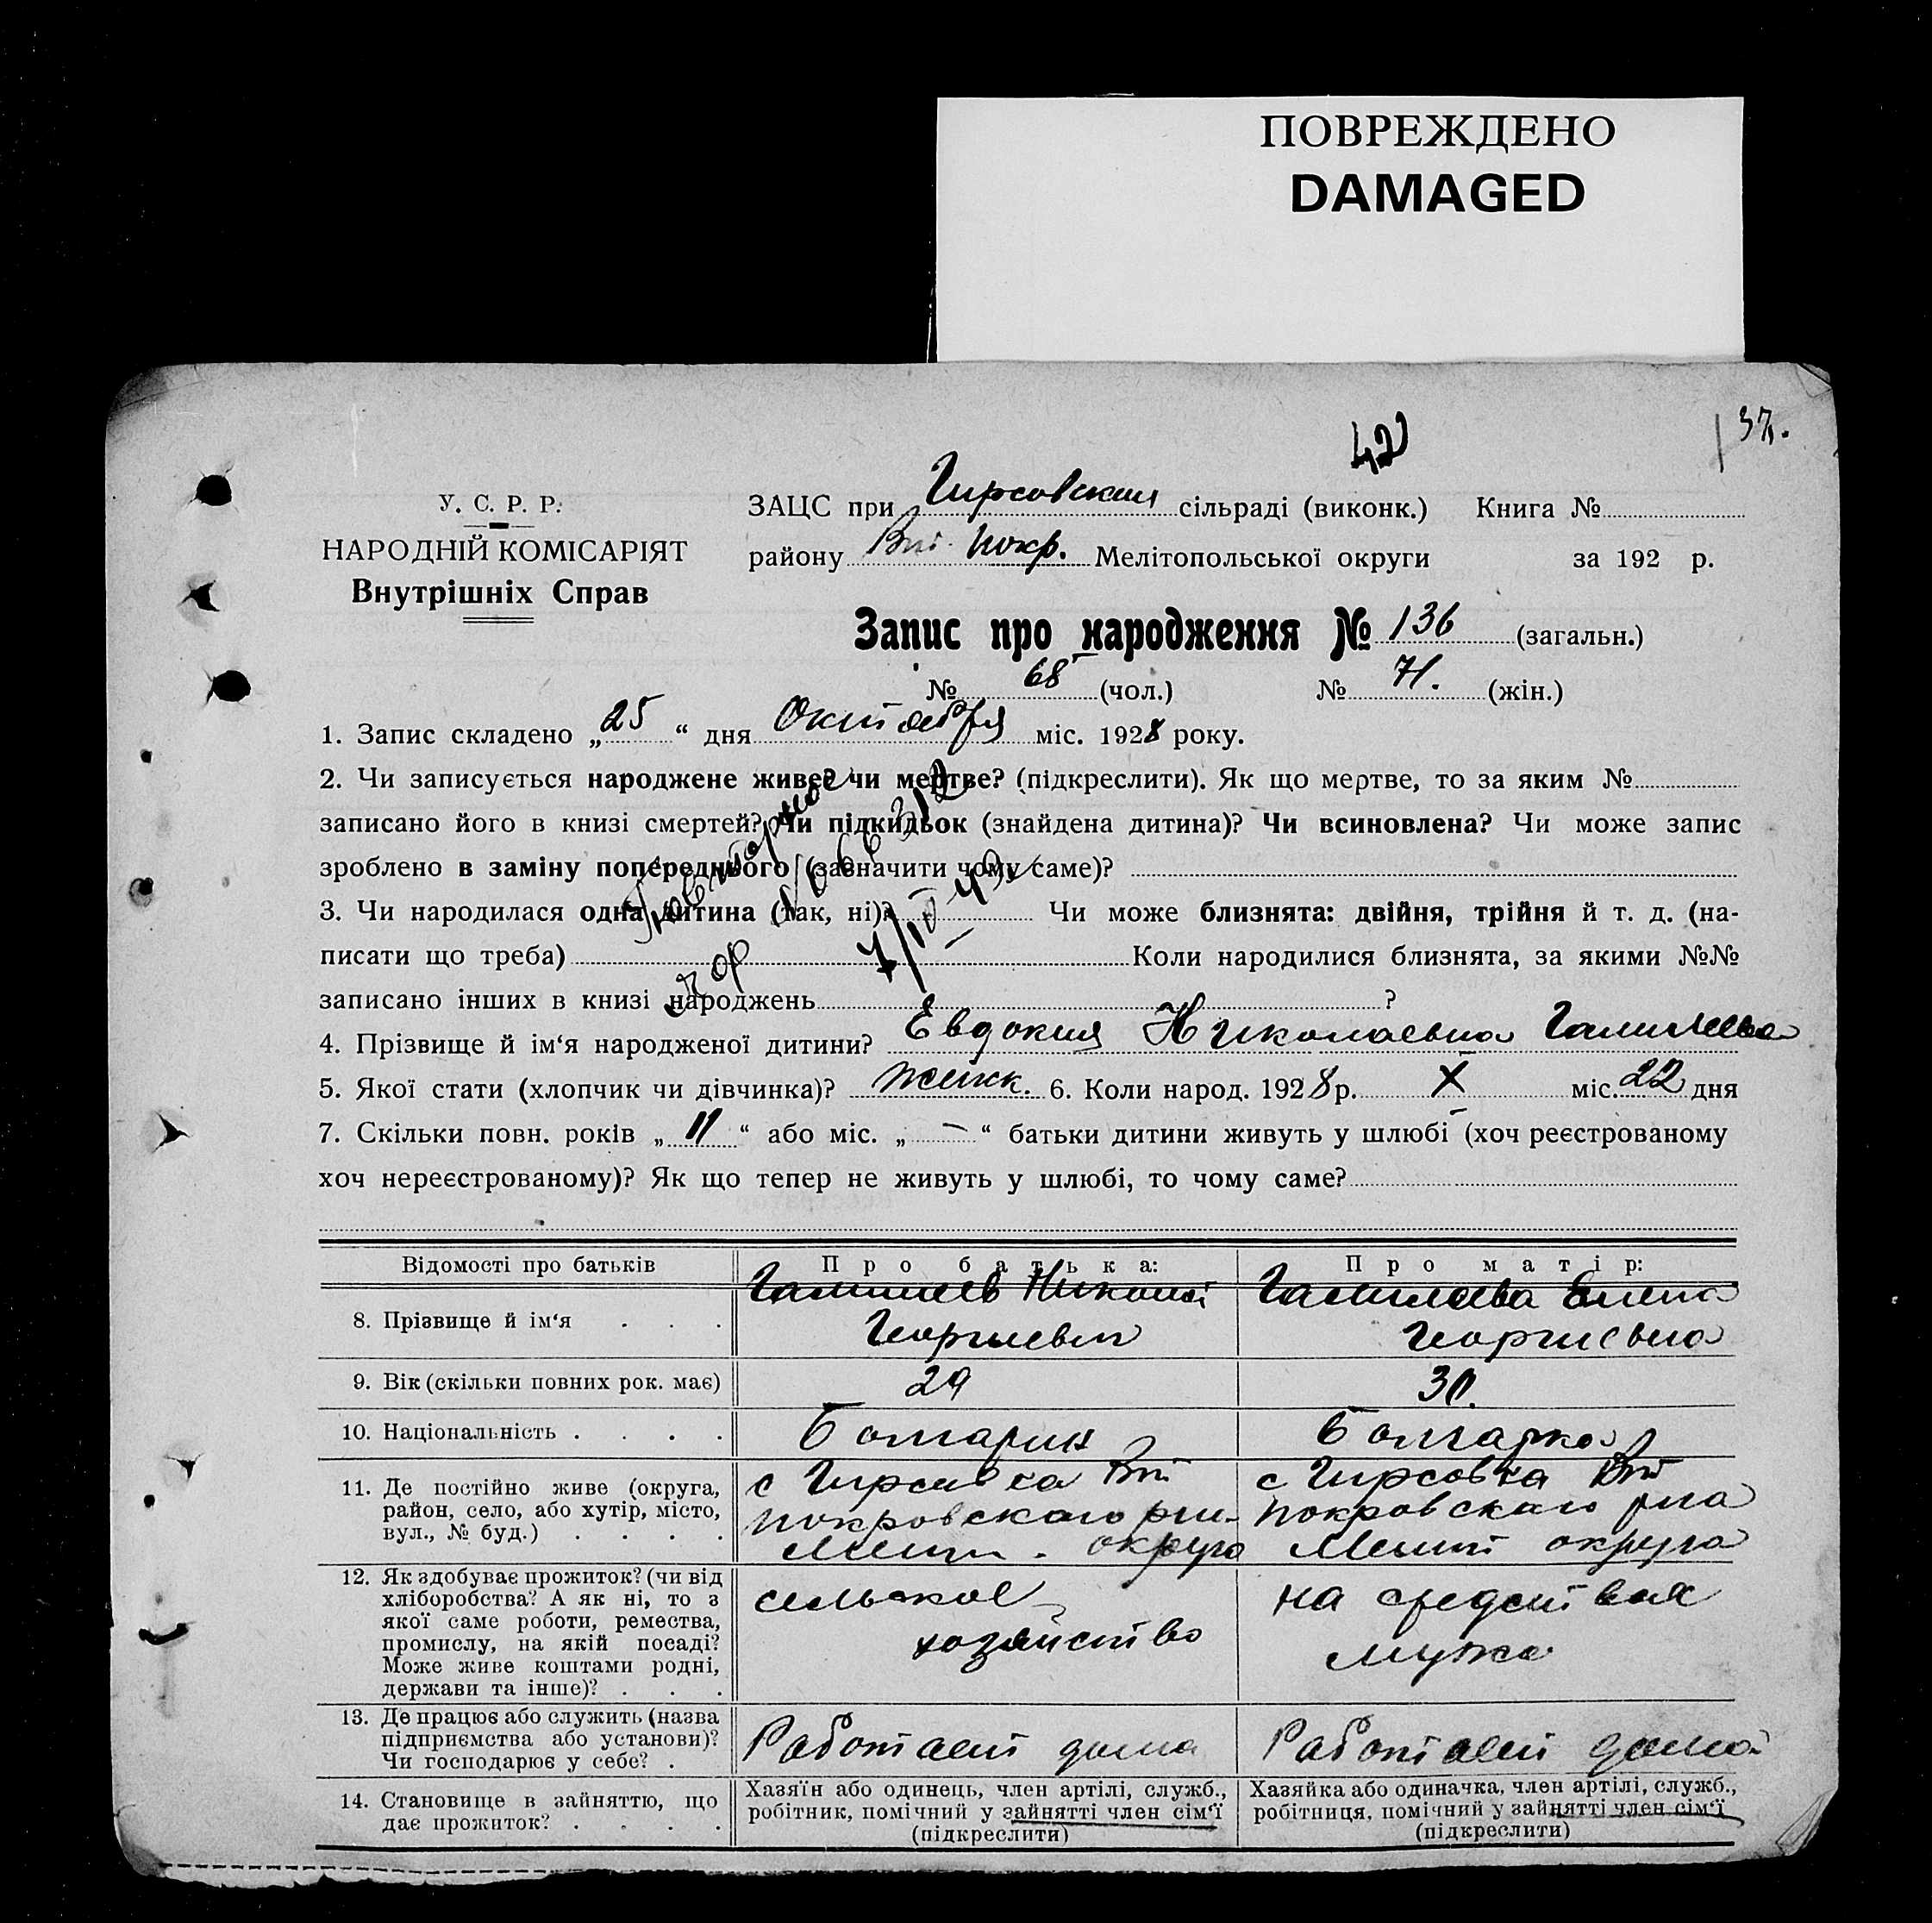 ПОВРЕЖДЕНО
DAMAGED
42
37.
У. С. Р. Р.
НАРОДНІЙ КОМІСАРІЯТ
Внутрішніх Справ
ЗАЦС при Гирсовскии сільраді (виконк.) Книга №
району Вт. Покр. Мелітопольської округи за 192 р.
Запис про народження № 136 (загальн.)
№ 68 (чол.) № 71. (жін.)
1. Запис складено „25“ дня Октября міс. 1928 року.
2. Чи записується народжене живе? чи мертве? (підкреслити). Як що мертве, то за яким №
записано його в книзі смертей? Чи підкидьок (знайдена дитина)? Чи всиновлена? Чи може запис
зроблено в заміну попереднього (зазначити чому саме)?
3. Чи народилася одна дитина (так, ні)? Чи може близнята: двійня, трійня й т. д. (на-
писати що треба) Коли народилися близнята, за якими №№
записано інших в книзі народжень ?
Повторное
7/IV
4. Прізвище й ім‘я народженої дитини? Евдокия Николаевна
5. Якої стати (хлопчик чи дівчинка)? женск. 6. Коли народ. 1928 р. X міс. 22 дня
7. Скільки повн. років „11“ або міс. „—“ батьки дитини живуть у шлюбі (хоч реєстрованому
хоч нереєстрованому)? Як що тепер не живуть у шлюбі, то чому саме?
Відомості про батьків
Про батька:
Про матір:
8. Прізвище й ім‘я . . .
Николай
Георгиевич
Елена
Георгиевна
9. Вік (скільки повних рок. має)
29
30.
10. Національність . . . .
Болгарин
Болгарка
11. Де постійно живе (округа,
район, село, або хутір, місто,
вул., № буд.) . . . .
с Гирсовка Вт
покровскаго рн.
Мелит. округа
с Гирсовка Вт
покровскаго рна
Мелит округа
12. Як здобуває прожиток? (чи від
хліборобства? А як ні, то з
якої саме роботи, ремества,
промислу, на якій посаді?
Може живе коштами родні,
держави та інше)? . . .
сельское
хозяйство
на средствах
мужа
13. Де працює або служить (назва
підприємства або установи)?
Чи господарює у себе? .
Работает дома
Работает дома
14. Становище в зайняттю, що
дає прожиток? . . . .
Хазяїн або одинець, член артілі, служб.,
робітник, помічний у зайнятті член сім‘ї
(підкреслити)
Хазяйка або одиначка, член артілі, служб.,
робітниця, помічний у зайнятті член сім‘ї
(підкреслити)